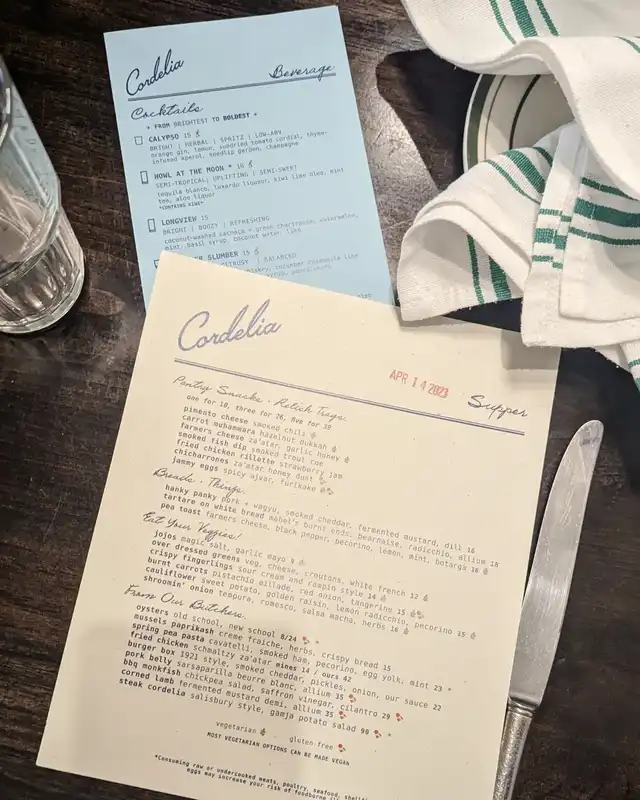 Cordelia
Beverage
Cocktails
* FROM BRIGHTEST TO BOLDEST *
CALYPSO 15
BRIGHT | HERBAL | SPRITZ | LOW-ABV
orange gin, lemon, sundried tomato cordial, thyme-
infused aperol, seedlip garden, champagne
HOWL AT THE MOON * 16
SEMI-TROPICAL| UPLIFTING | SEMI-SWEET
tequila blanco, luxardo liqueur, kiwi lime oleo, mint
tea, aloe liquor
*CONTAINS KIWI*
LONGVIEW 15
BRIGHT | BOOZY | REFRESHING
coconut-washed cachaca + green chartreuse, watermelon,
mint, basil syrup, coconut water, lime
SLUMBER 15
CITRUSY | BALANCED
cucumber chamomile
Cordelia
APR 14 2023
Supper
Pantry Snacks · Relish Trays.
one for 10, three for 26, five for 39
pimento cheese smoked chili
carrot muhammara hazelnut dukkah
farmers cheese za'atar, garlic honey
smoked fish dip smoked trout roe
fried chicken rillette strawberry jam
chicharrones za'atar honey dust
jammy eggs spicy ajvar, furikake
Breads · Things.
hanky panky pork + wagyu, smoked cheddar, fermented mustard, dill 16
tartare on white bread mabel's burnt ends, bearnaise, radicchio, allium 18
pea toast farmers cheese, black pepper, pecorino, lemon, mint, botarga 16
Eat Your Veggies!
jojos magic salt, garlic mayo 9
over dressed greens veg, cheese, croutons, white french 12
crispy fingerlings sour cream and rampin style 14
burnt carrots pistachio aillade, red onion, tangerine 15
cauliflower sweet potato, golden raisin, lemon radicchio, pecorino 15
shroomin' onion tempura, romesco, salsa macha, herbs 16
From Our Butchers.
oysters old school, new school 8/24 *
mussels paprikash creme fraiche, herbs, crispy bread 15
spring pea pasta cavatelli, smoked ham, pecorino, egg yolk, mint 23 *
fried chicken schmaltzy za'atar mines 14 / ours 42
burger box 1921 style, smoked cheddar, pickles, onion, our sauce 22
pork belly sarsaparilla beurre blanc, allium 35
bbq monkfish chickpea salad, saffron vinegar, cilantro 29
corned lamb fermented mustard demi, allium 35
steak cordelia salisbury style, gamja potato salad 90 *
vegetarian gluten free
MOST VEGETARIAN OPTIONS CAN BE MADE VEGAN
*Consuming raw or undercooked meats, poultry, seafood,
eggs may increase your risk of foodborne